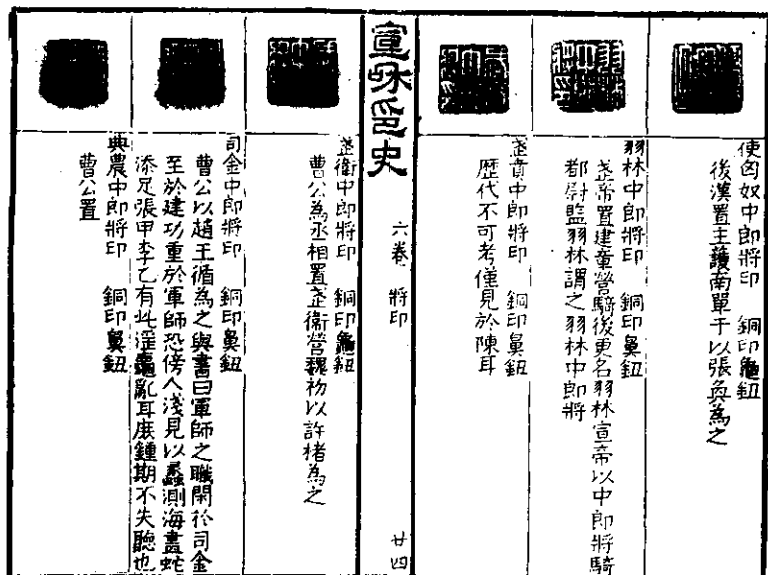 使匈奴中郎將印 銅印龜鈕
後漢置主護南單于以張奐為之
羽林中郎將印 銅印鼻鈕
武帝置建章營騎後更名羽林宣帝以中郎將騎
都尉監羽林謂之羽林中郎將
武賁中郎將印 銅印鼻鈕
歷代不可考僅見於陳耳
宣和印史
六卷 將印
廿四
武衛中郎將印 銅印龜鈕
曹公為丞相置武衛營魏初以許楮為之
司金中郎將印 銅印鼻鈕
曹公以趙王循為之與書曰軍師之職閑於司金
至於建功重於軍師恐傍人淺見以蠡測海畫蛇
添足張甲李乙有此淫鼃亂耳庶鍾期不失聽也
典農中郎將印 銅印鼻鈕
曹公置